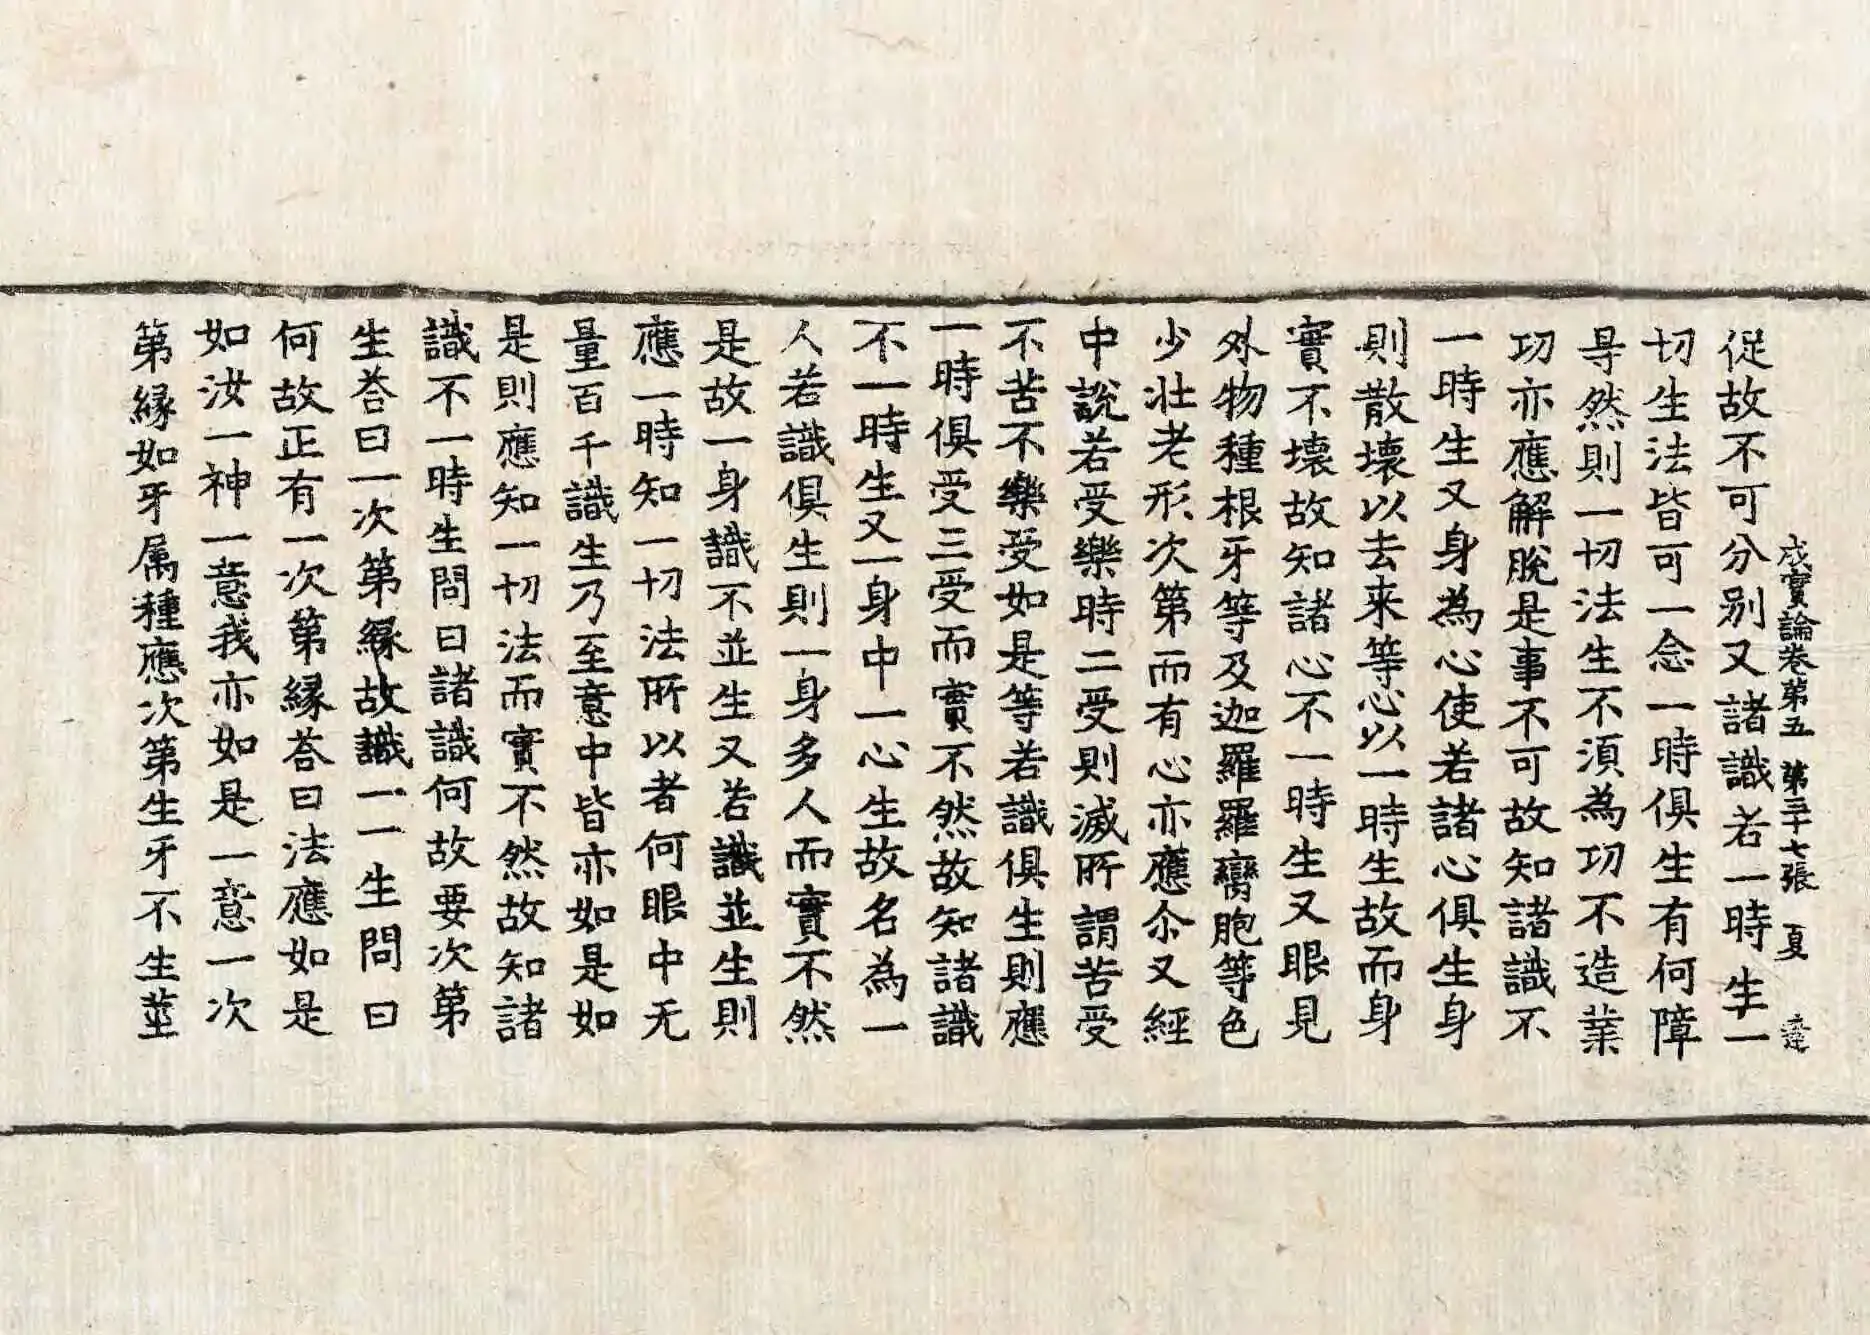 成實論卷第五 第三十七張 夏
促故不可分别又諸識若一時生一
切生法皆可一念一時俱生有何障
㝵然則一切法生不須為功不造業
功亦應解脫是事不可故知諸識不
一時生又身為心使若諸心俱生身
則散壞以去来等心以一時生故而身
實不壞故知諸心不一時生又眼見
外物種根牙等及迦羅羅孿胞等色
少壯老形次第而有心亦應尒又經
中說若受樂時二受則滅所謂苦受
不苦不樂受如是等若識俱生則應
一時俱受三受而實不然故知諸識
不一時生又一身中一心生故名為一
人若識俱生則一身多人而實不然
是故一身識不並生又若識並生則
應一時知一切法所以者何眼中无
量百千識生乃至意中皆亦如是如
是則應知一切法而實不然故知諸
識不一時生問曰諸識何故要次第
生荅曰一次第緣故識一一生問曰
何故正有一次第緣荅曰法應如是
如汝一神一意我亦如是一意一次
第緣如牙属種應次第生牙不生莖